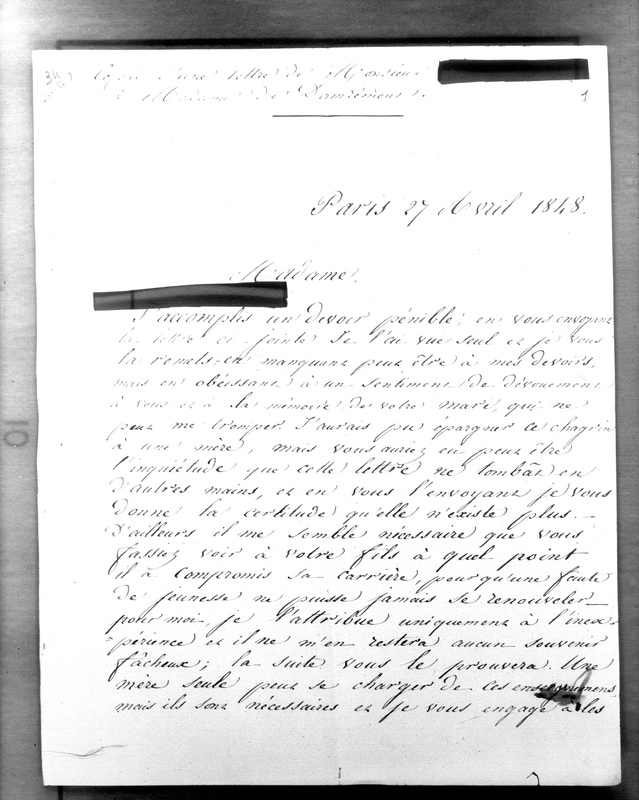 Copie d'une lettre de Monsieur
à Madame de Damrémont.
1
Paris 27 Avril 1848.
Madame,
J'accomplis un devoir pénible, en vous envoyant
la lettre ci-jointe Je l'ai vue seul et je vous
la remets en manquant peut être à mes devoirs,
mais en obéissant à un sentiment de dévouement
à vous et à la mémoire de votre mari, qui ne
peut me tromper J'aurais pu épargner ce chagrin
à une mère, mais vous auriez eu peut être
l'inquiétude que cette lettre ne tombât en
d'autres mains, et en vous l'envoyant je vous
donne la certitude qu'elle n'existe plus.—
D'ailleurs il me semble nécessaire que vous
fassiez voir à votre fils à quel point
il a compromis sa carrière, pour qu'une faute
de jeunesse ne puisse jamais se renouveler—
pour moi je l'attribue uniquement à l'inex-
-périence et il ne m'en restera aucun souvenir
fâcheux; la suite vous le prouvera. Une
mère seule peut se charger de ces enseignemens,
mais ils sont nécessaires et je vous engage à les